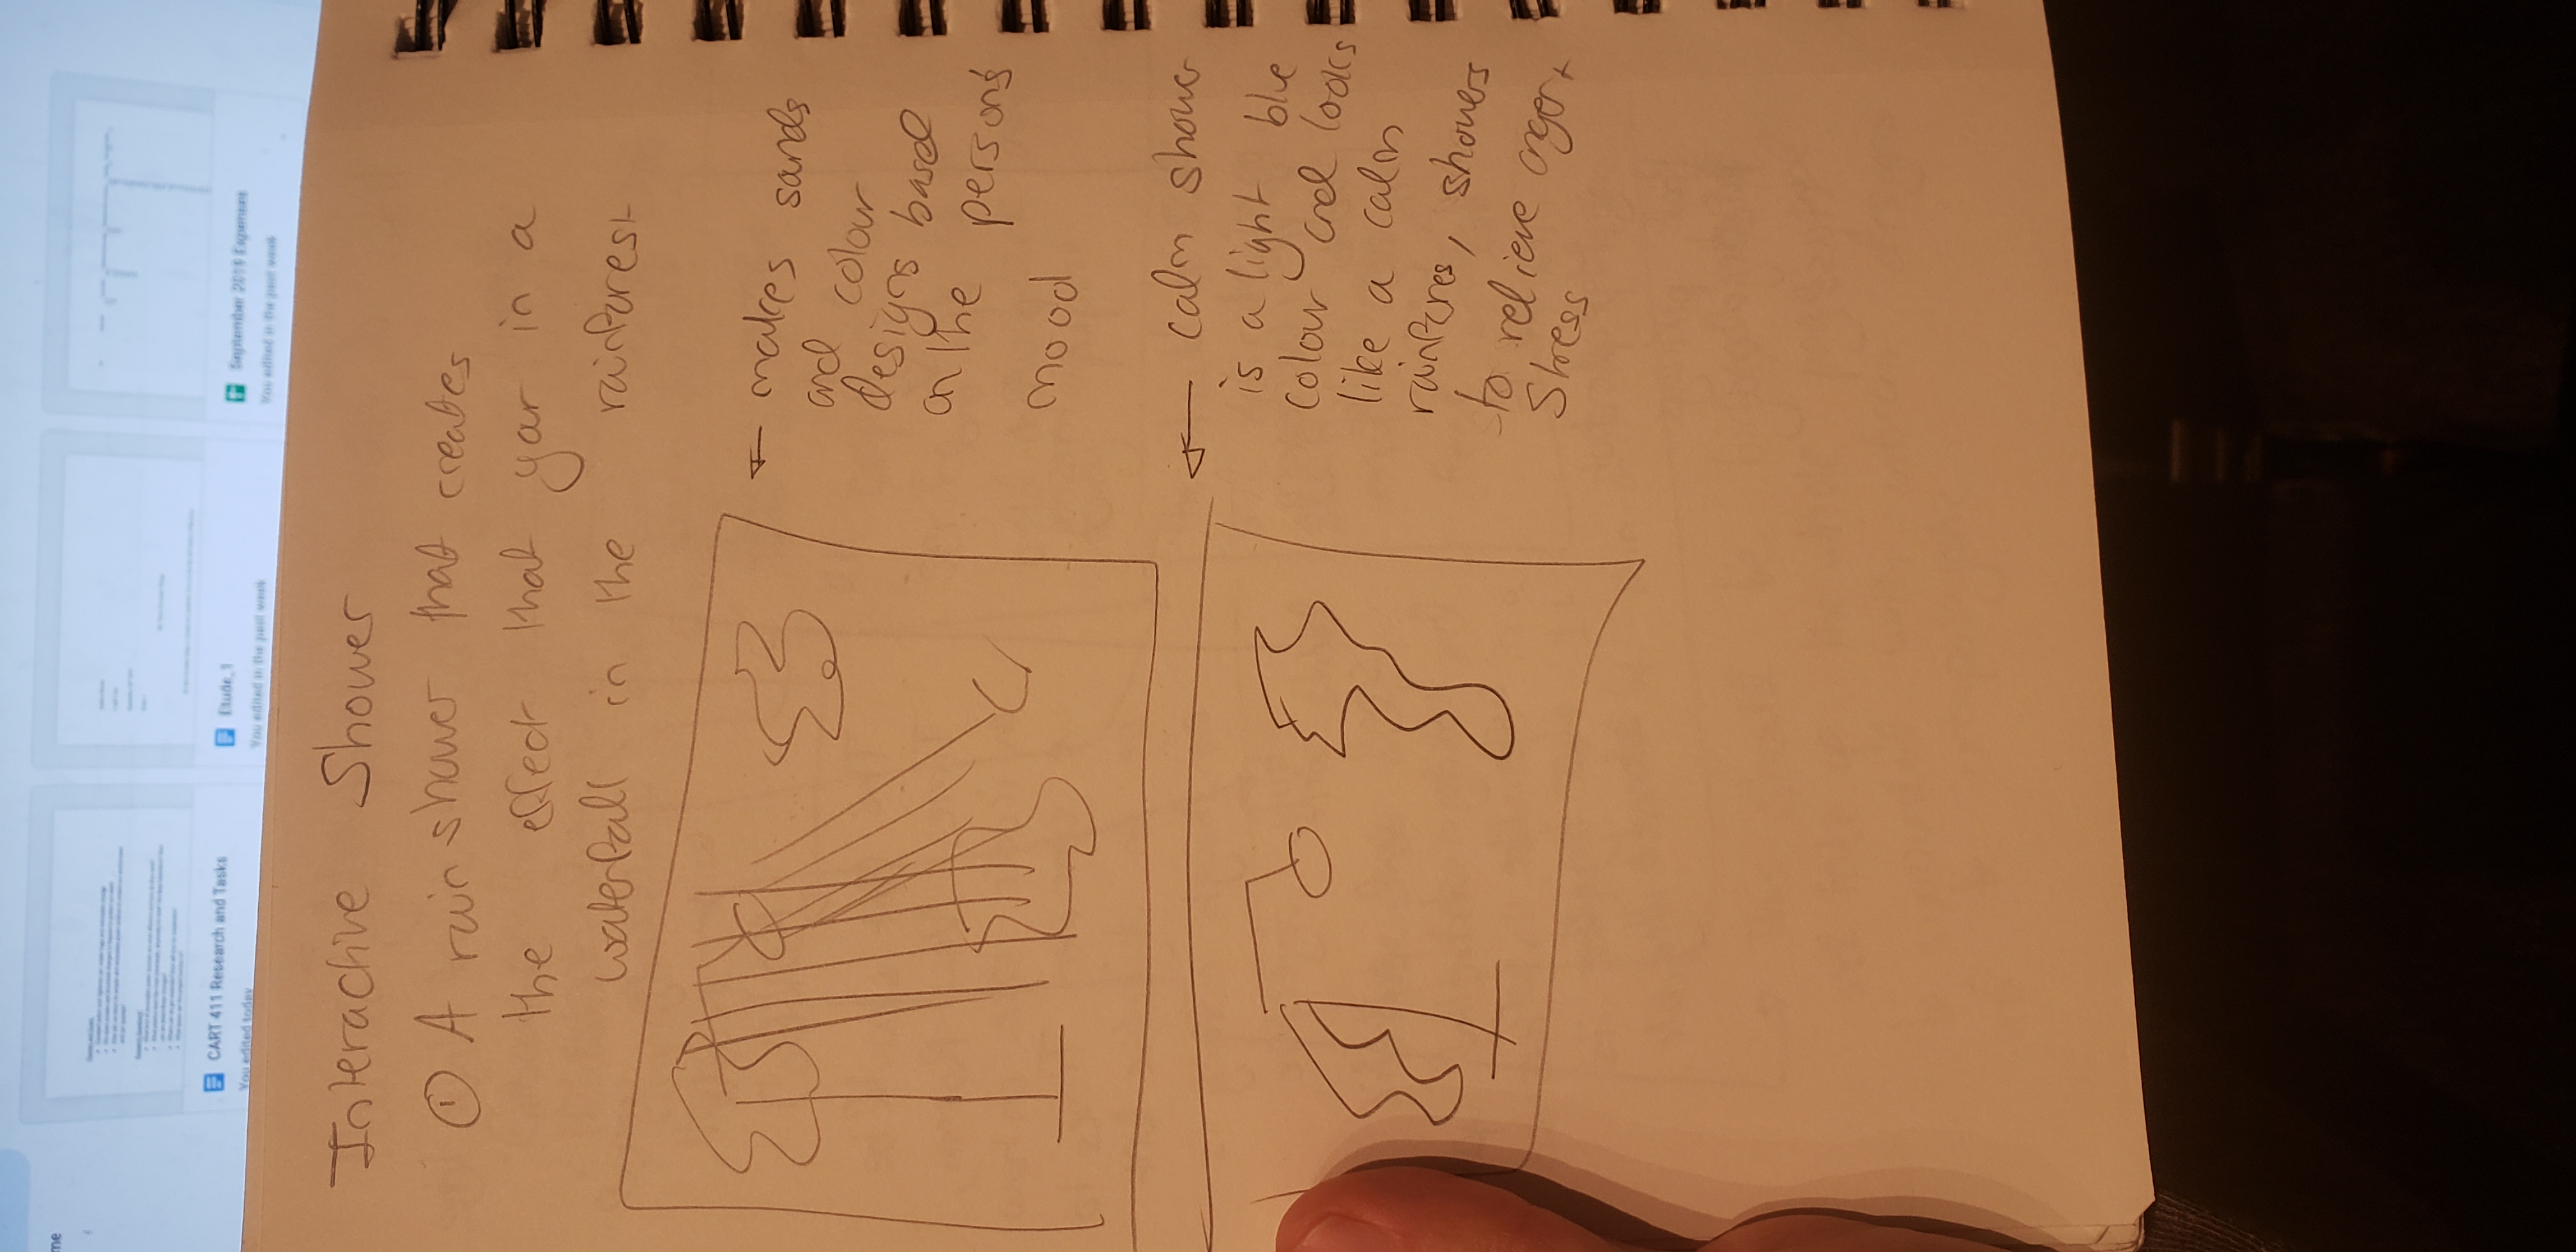 me
CART 411 Research and Tasks
You edited today
Etude_1
You edited in the past week
September 2019 Expenses
You edited in the past week
Interactive Shower
① A rain shower that creates
the effect that your in a
waterfall in the rainforest
← makes sounds
and colour
designs based
on the person's
mood
← calm shower
is a light blue
colour and looks
like a calm
rainfores, showers
to relieve anger +
Stress